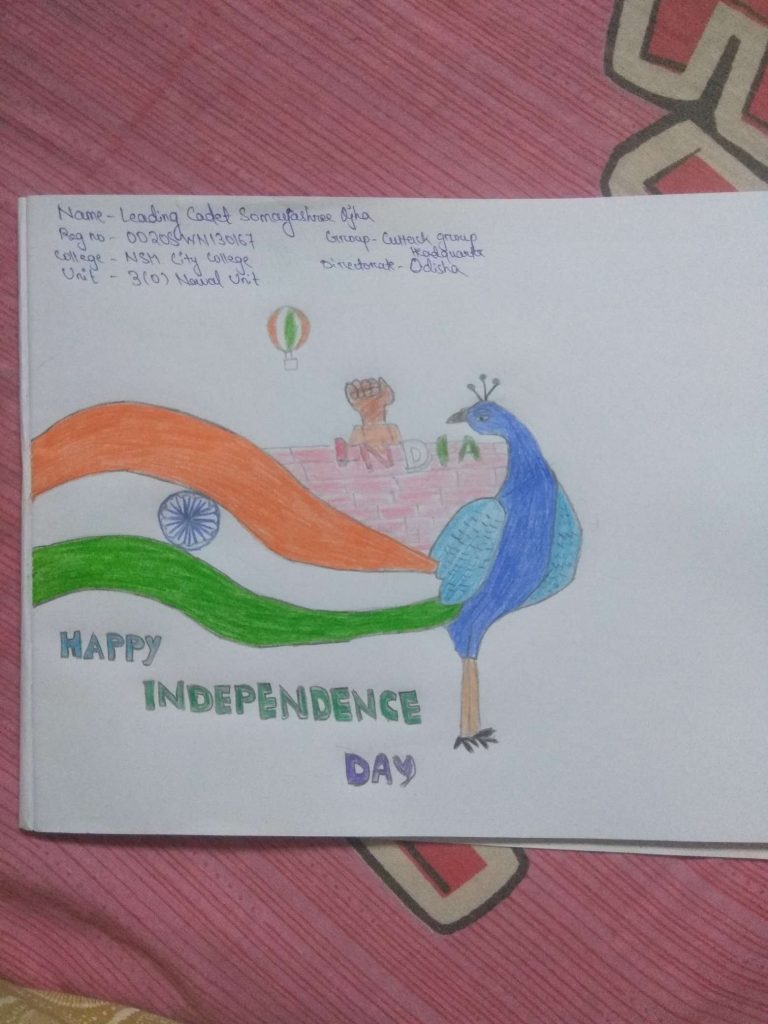 Name - Leading Cadet Somayashree Ojha
Reg no - OD20SWN130167
College - NSM City College
Unit - 3(O) Naval Unit
Group - Cuttack group
Headquarter
Directorate - Odisha
INDIA
HAPPY
INDEPENDENCE
DAY